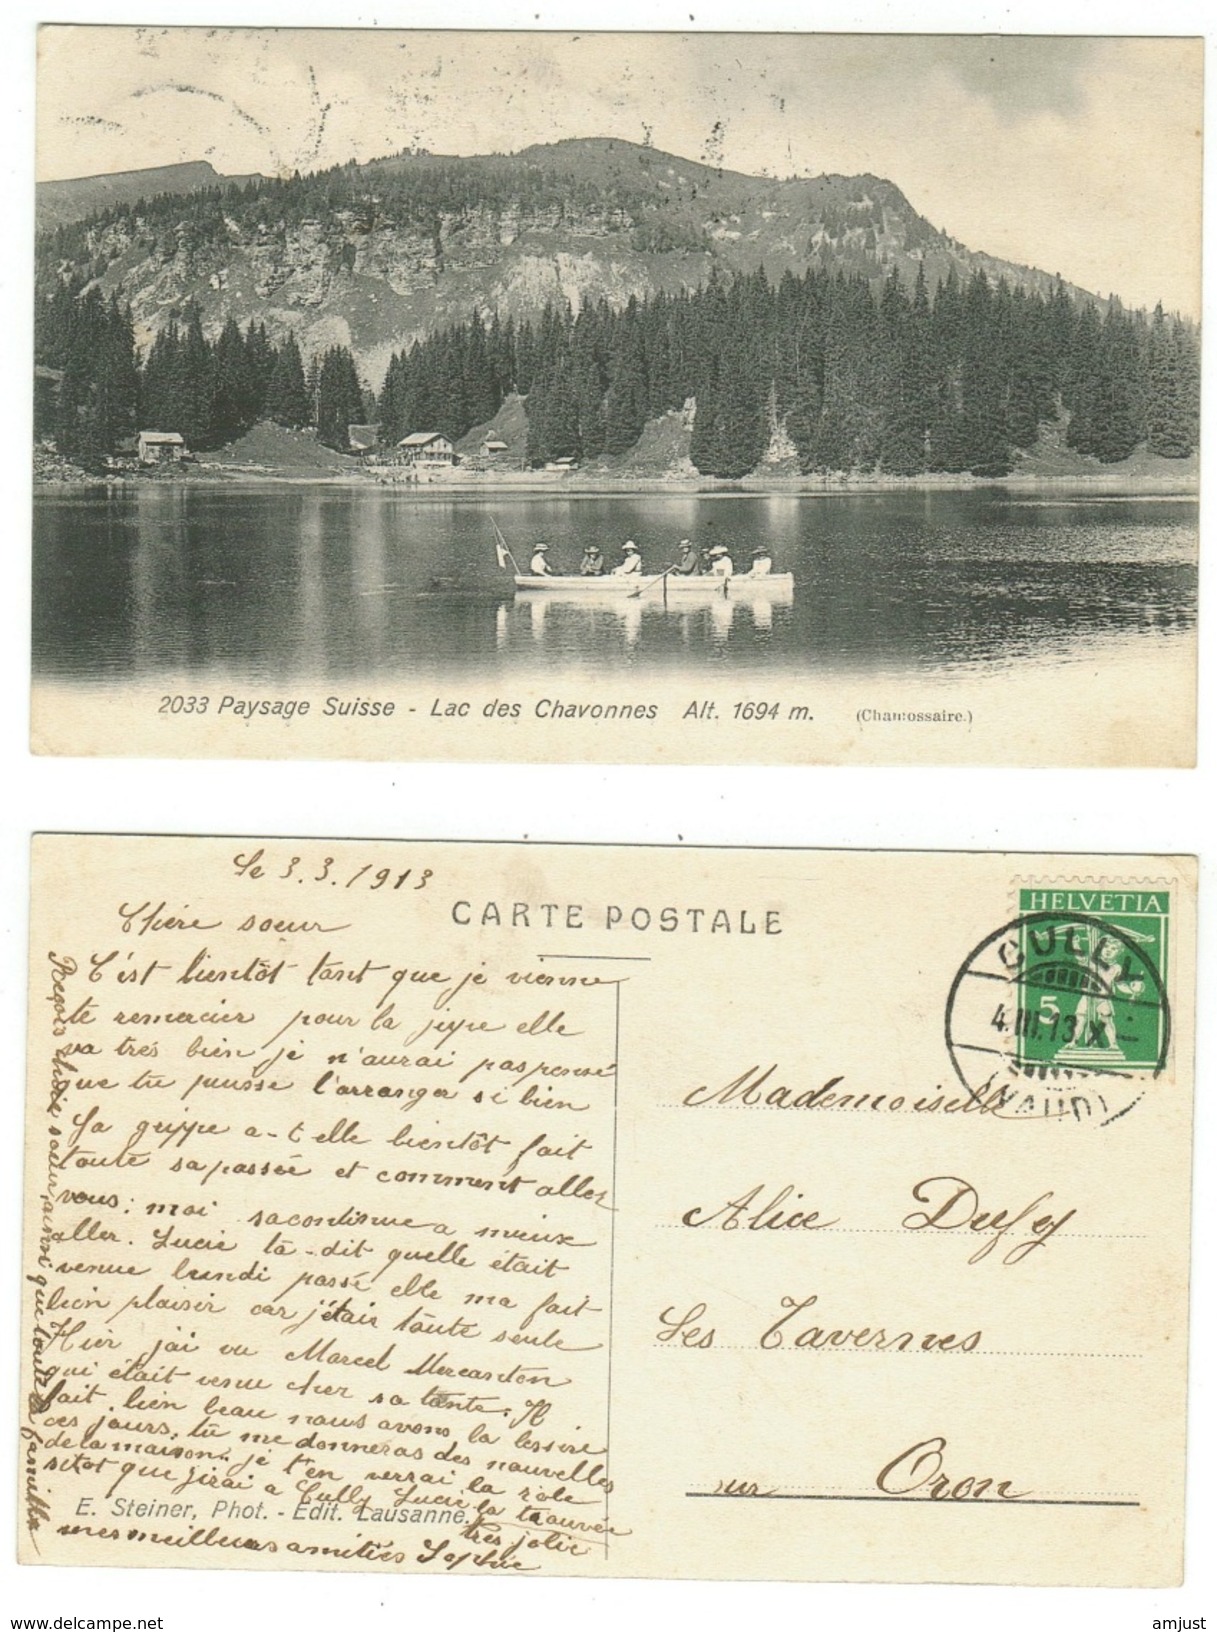 2033 Paysage Suisse - Lac des Chavonnes Alt. 1694 m. (Chamossaire.)
Le 3.3.1913
CARTE POSTALE
HELVETIA
5
CULLY
4.III.13.X
(VAUD)
Chère soeur
C'est bientôt tant que je vienne
te remercier pour la jupe elle
va très bien je n'aurai pas pensé
que tu puusse l'arranger si bien
La grippe a-t elle bientôt fait
toute sa passée et comment allez
vous: moi sa continue a mieux
aller. Lucie ta-dit quelle était
venue lundi passé elle ma fait
bien plaisir car j'étais toute seule
Hier jai vu Marcel Mercanton
qui était venu cher sa tante. Il
fait bien beau nous avons la lessive
ces jours, tu me donneras des nouvelles
de la maison. je t'en verrai la robe
sitot que jirai a Cully Lucie la trouvée
très jolie
mes meilleurs amitiés Sophie
Reçois chère soeur, ainsi que toute la famille
E. Steiner, Phot. - Edit. Lausanne.
Mademoiselle
Alice Dufey
Les Tavernes
sur Oron
www.delcampe.net
amjust